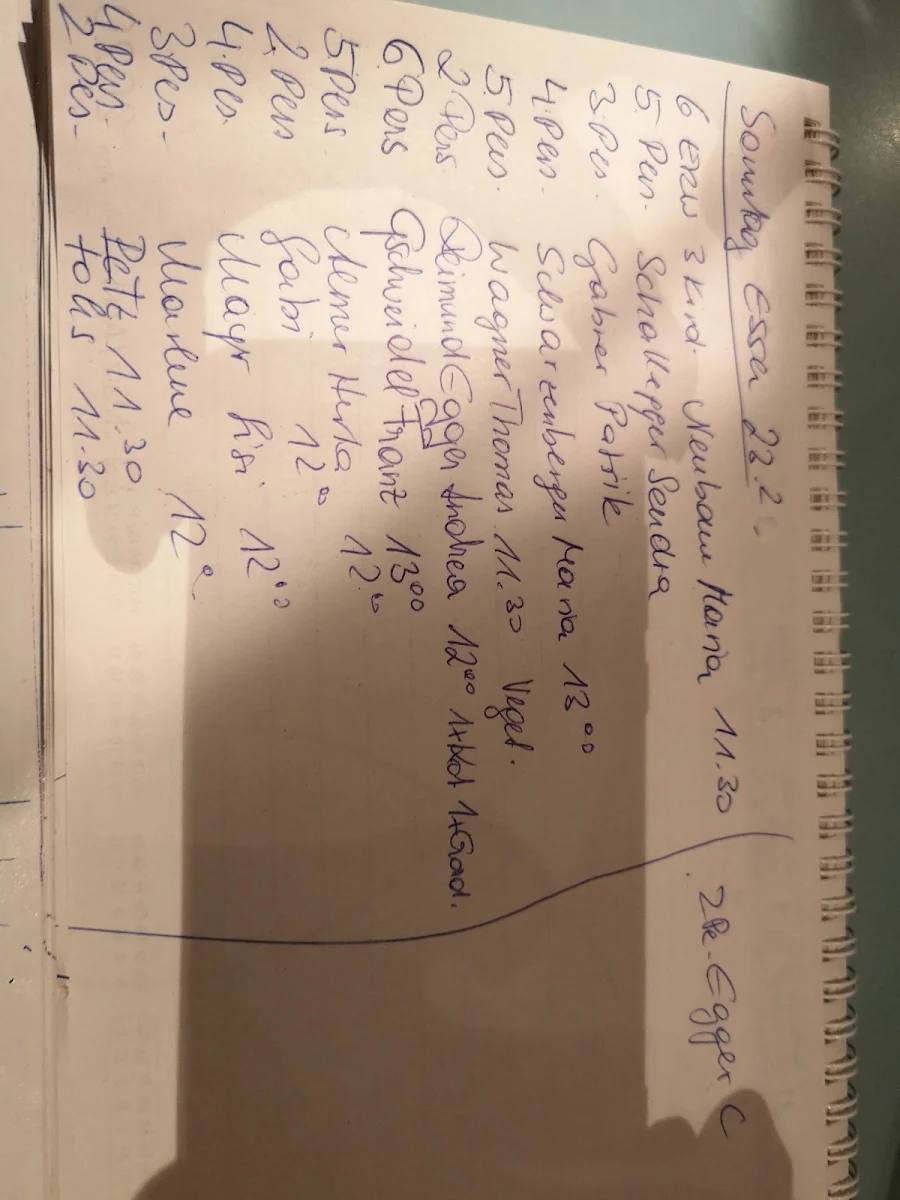 Sonntag Essen 22.2.
6 Erw 3 Kind. Neubauer Maria 11.30
5. Pers. Schallegger Sandra
3. Pers. Gabner Patrik
4. Pers. Schwarzenberger Maria 13 00
5. Pers. Wagner Thomas 11.30 Veget.
2 Pers Reimund Egger Andrea 12 00
6 Pers Gschweidel Franz 13 00
5 Pers Herta 12 00
2 Pers Gabi 12 00
4. Pers Mayr Lisi 12 00
3 Pers. Marlene 12
4 Pers. 11.30
2 Pers. 11.30
2 Pe. Egger C